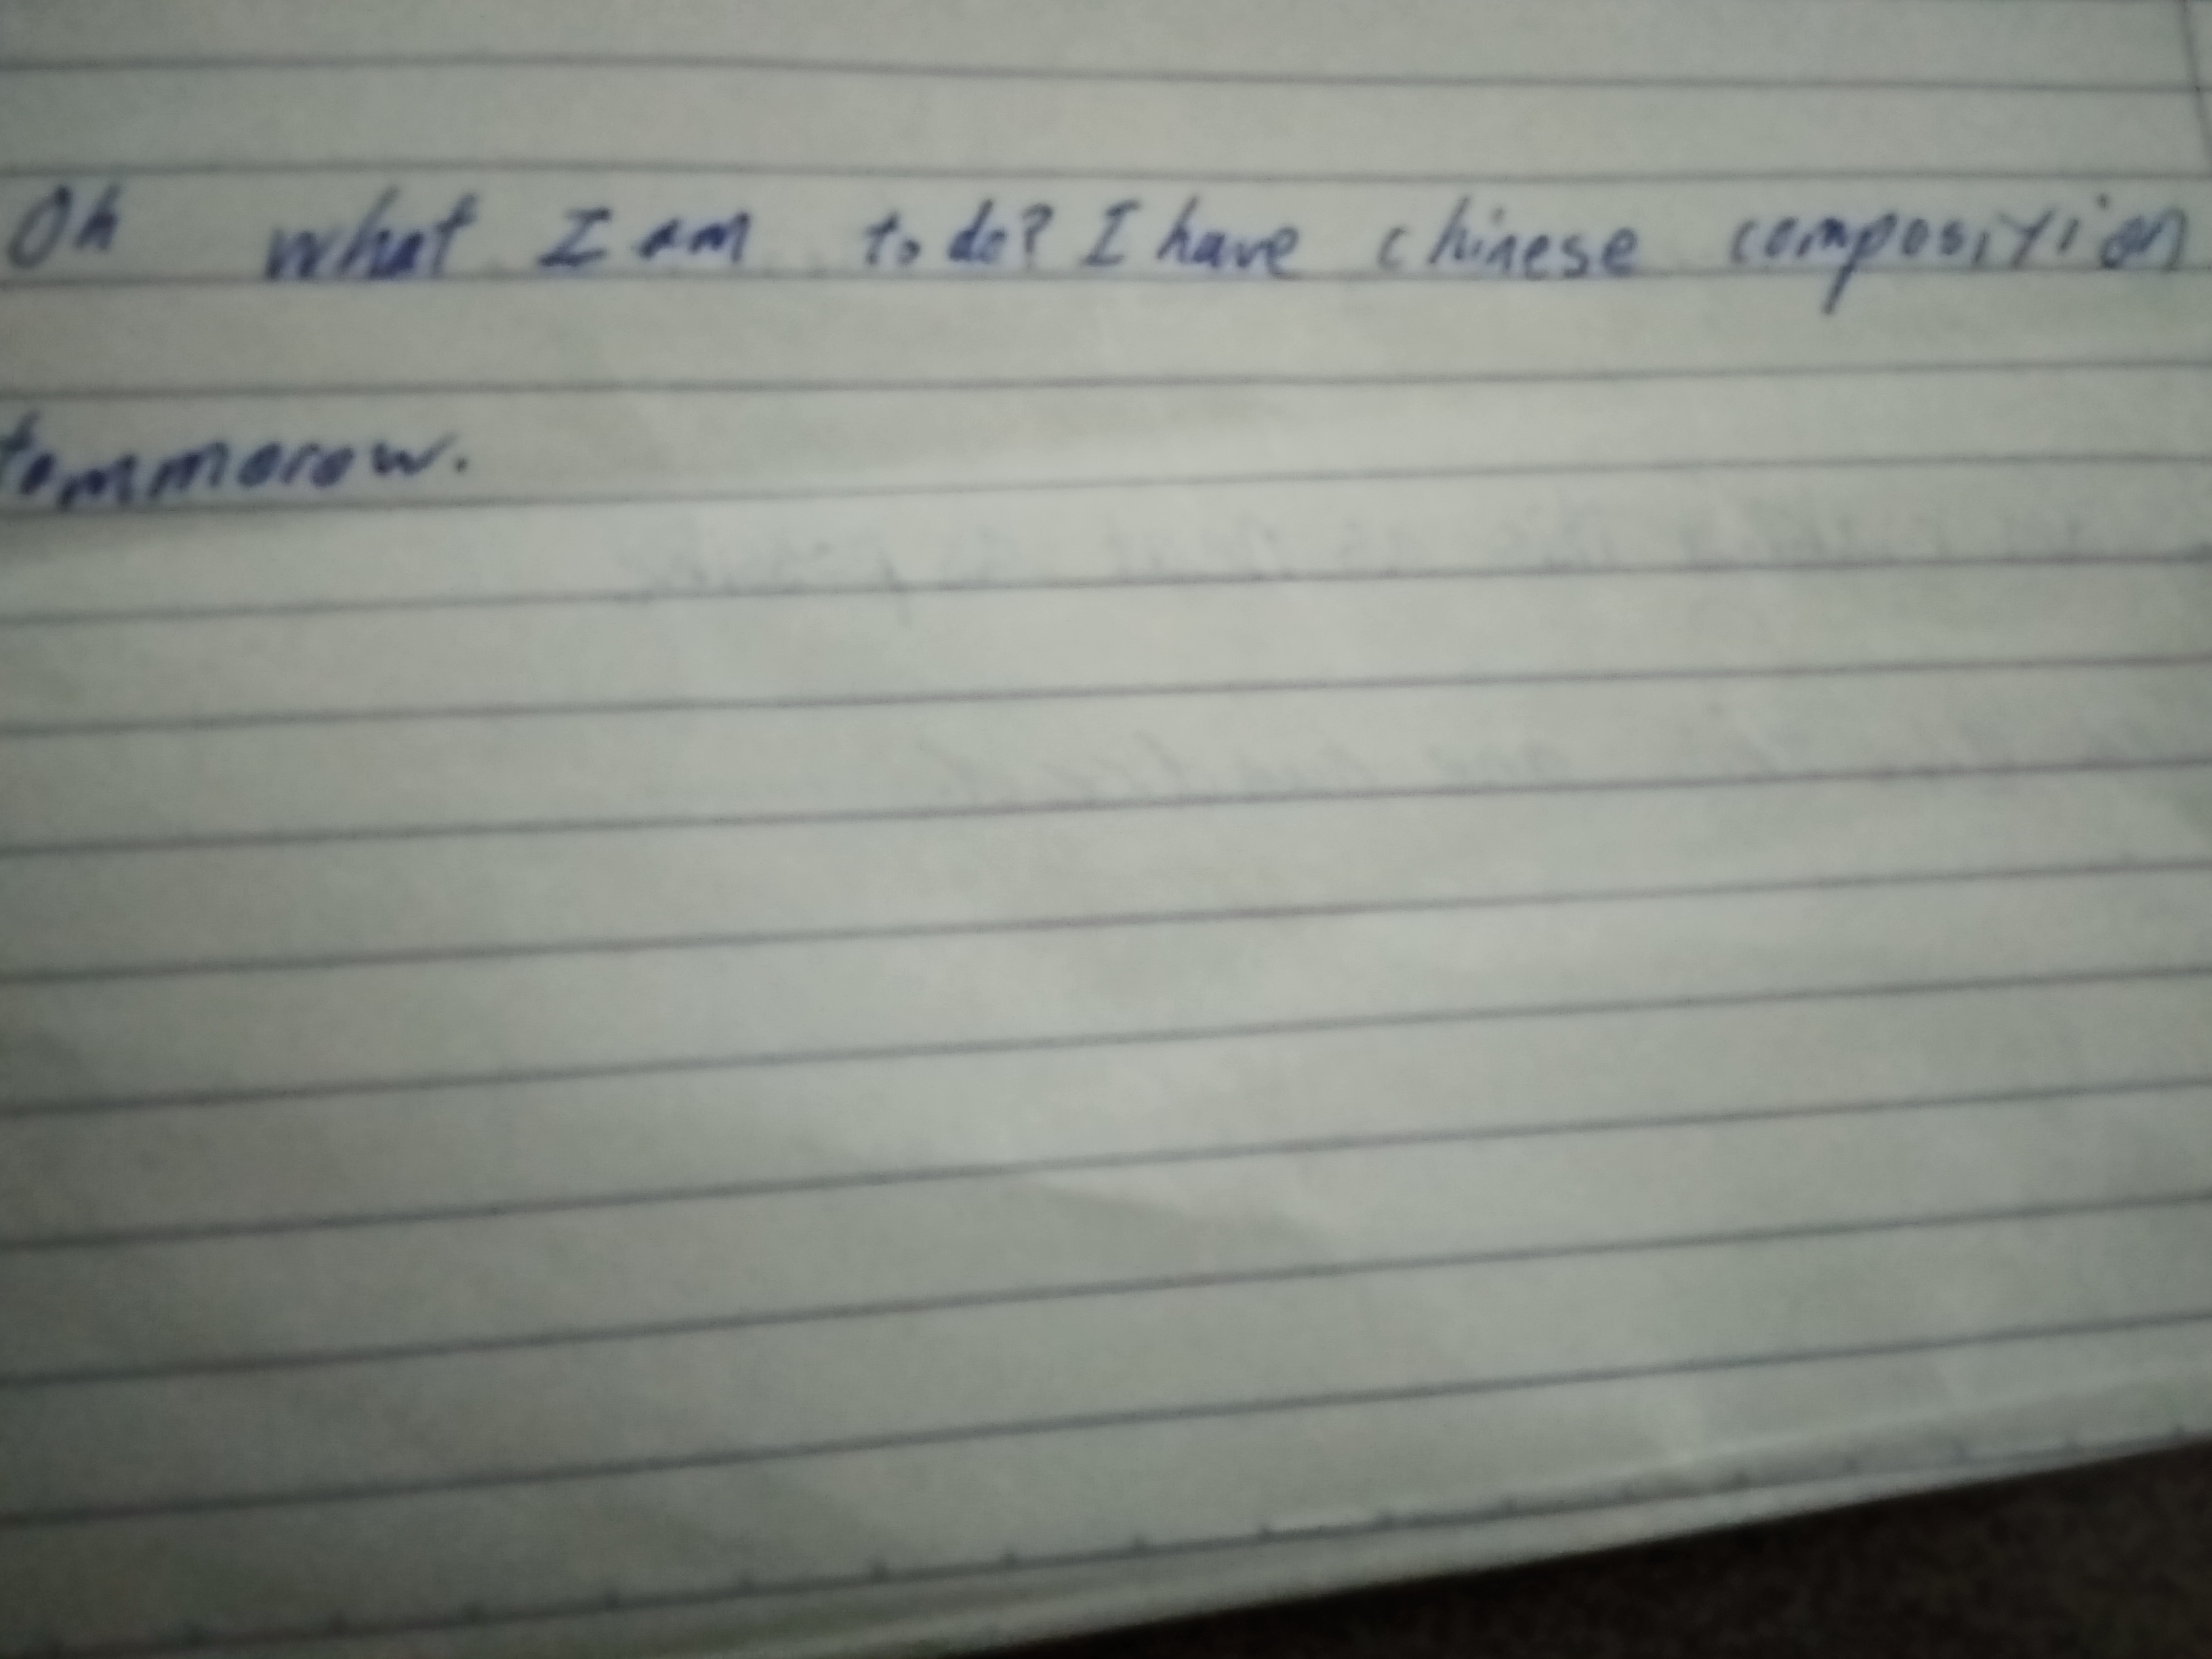 Oh what I am to do? I have chinese composiyion
tommorow.